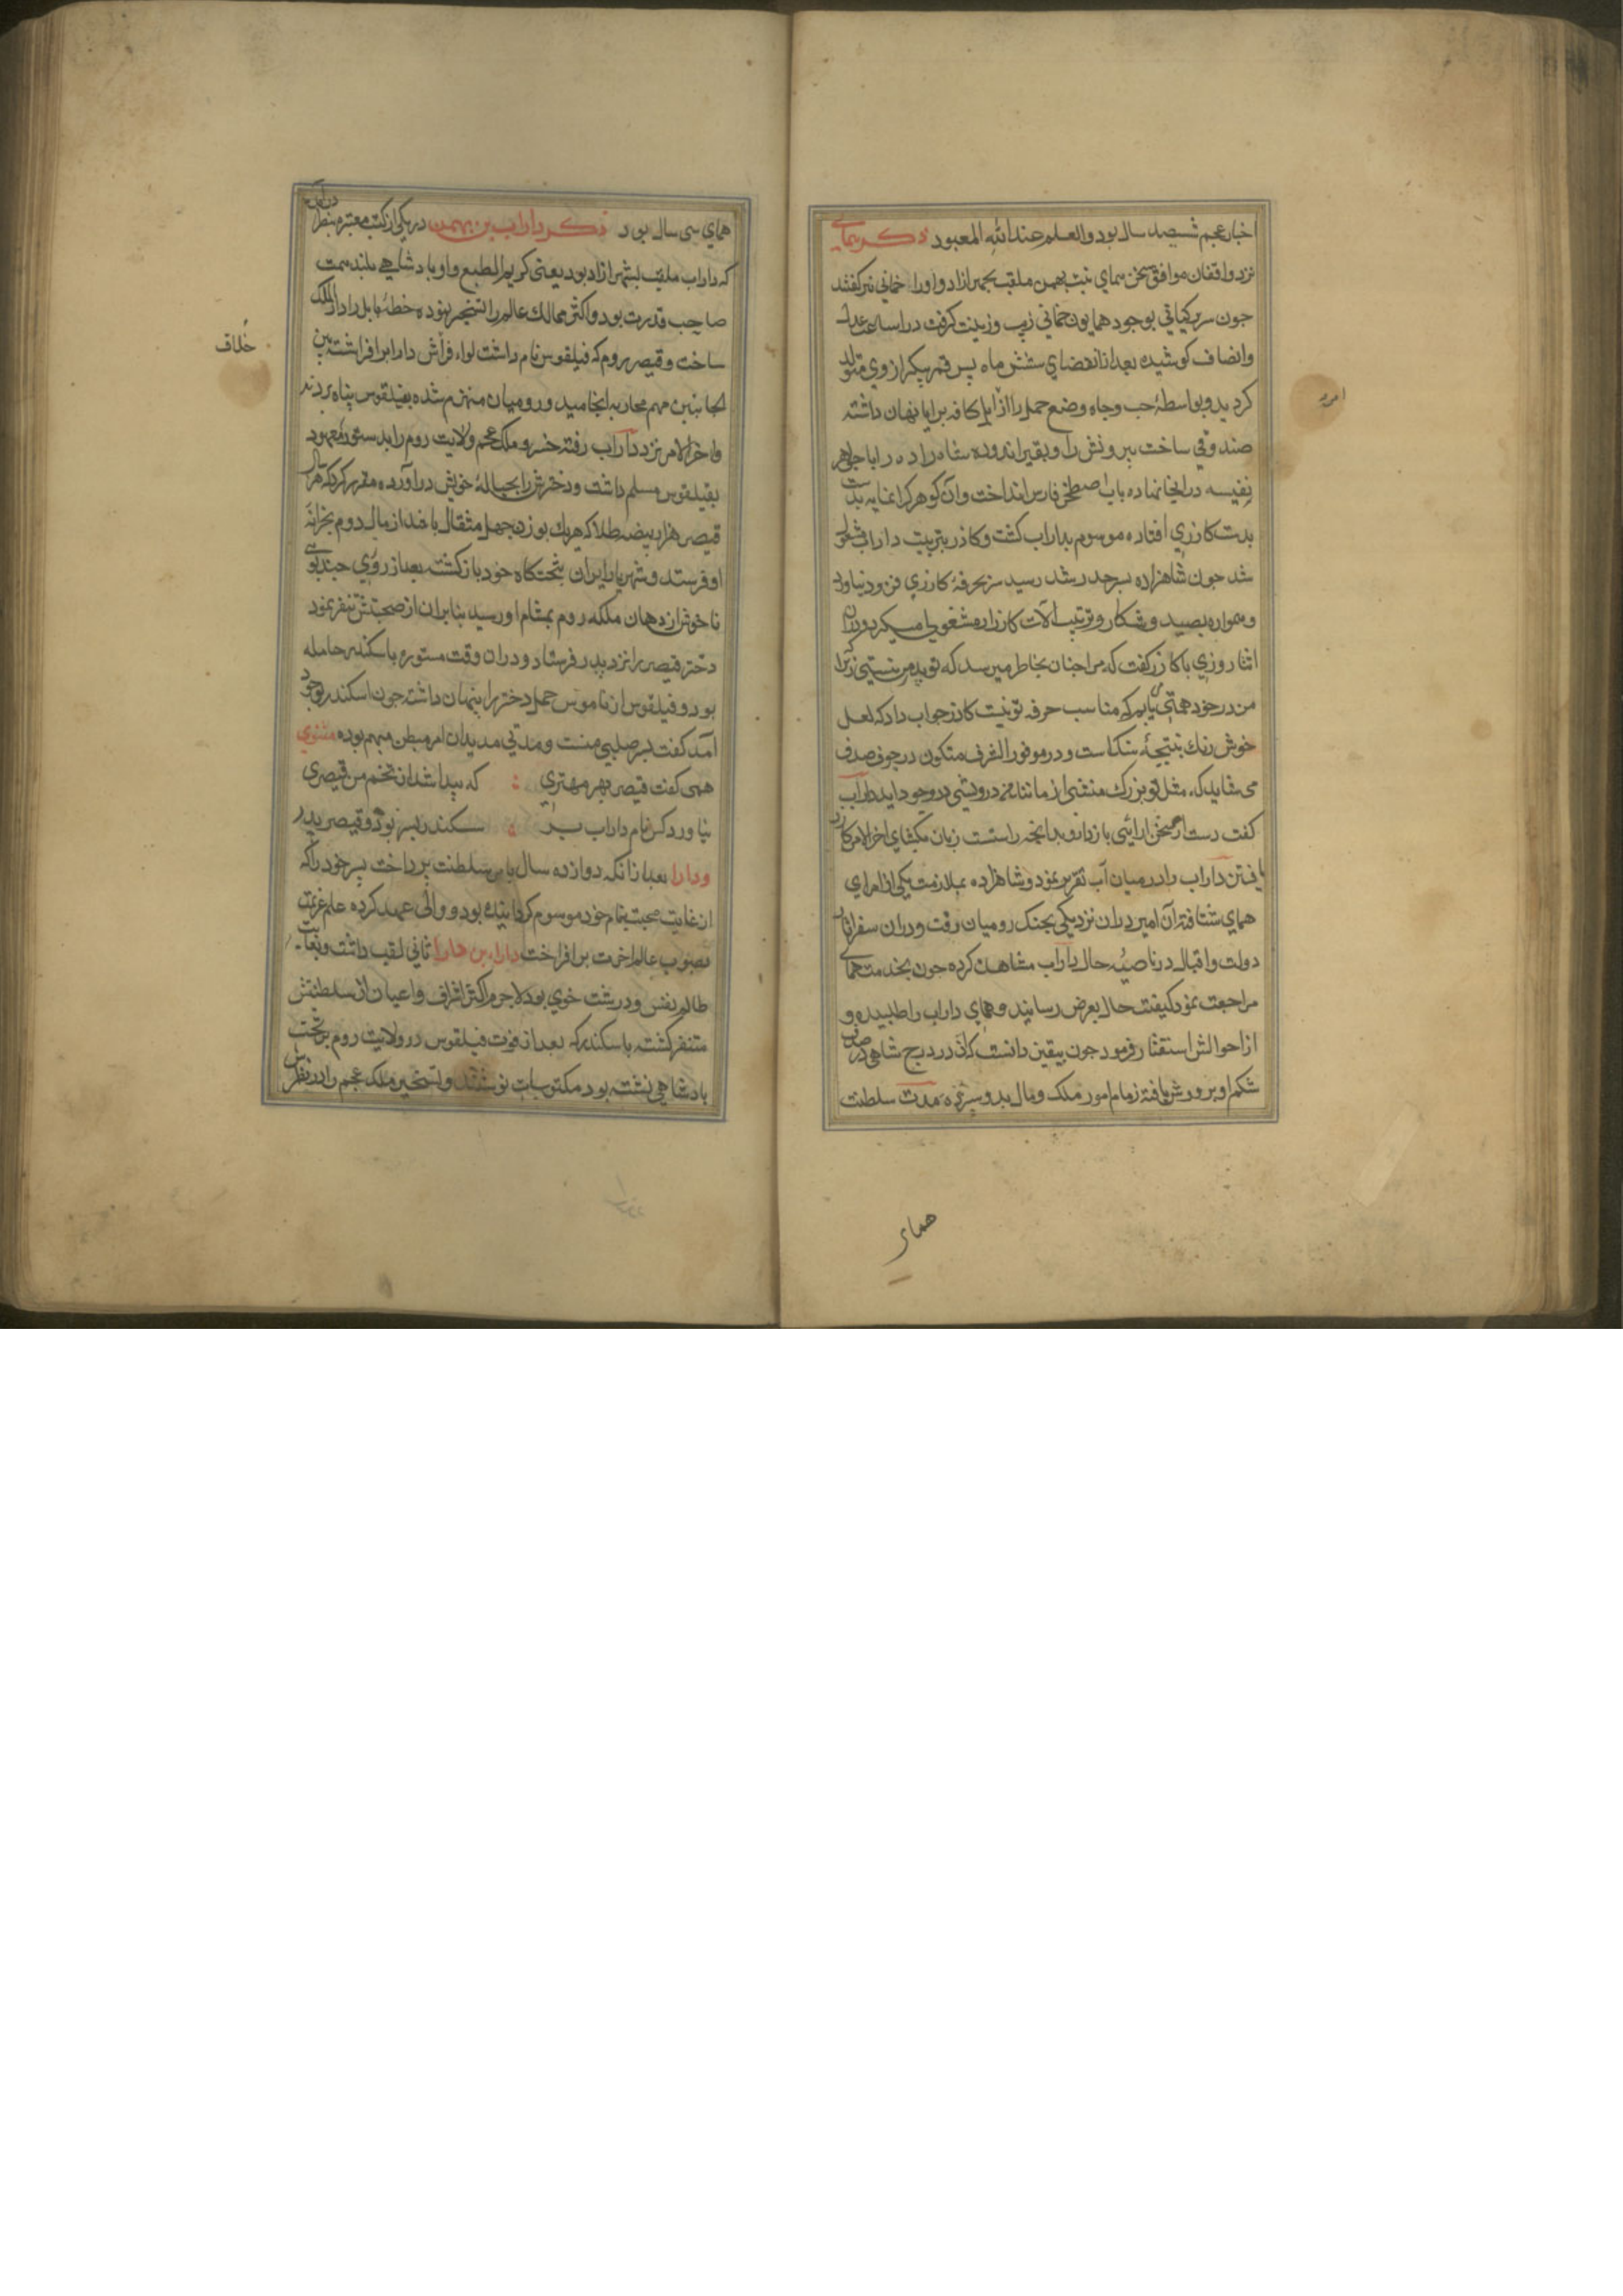 اخبار عجم شصد سال بود والعلم عند الله المعبود ذکر همای
نزد واقفان مواقف سخن همای بنت بهمن ملقب بجهرازاد و اورا خمانی نیز کفتند
جون سریر کیانی بوجود همایون خمانی زیب و زینت کرفت در اساعت عدل
وانصاف کوشیده بعد از انقضای شش ماه پسر قمر پیکر از وی متولد
کردید و بواسطهٔ حب وجاه وضع حمل را از کافه برایا نهان داشته
صندوقی ساخت بیرونش را بقیر اندوده شاه زاده را با جواهر
نفیسه در انجا نهاده باب اصطخر فارس انداخت وآن کوهر کرانمایه
بدست کازری افتاده موسوم بداراب کشت و کاذر بتربیت داراب مشغول
شد جون شاهزاده بسرحد رشد رسید سر بحرفهٔ کازری فرود نیاورد
وهمواره بصید و شکار و ترتیب آلات کارزار مشغولی میکرد ودران
اثنا روزی با کازر کفت که مرا جنان بخاطر میرسد که تو پدر من نیستی زیرا
من در خود همتی می یابم که مناسب حرفه تو نیست کازر جواب داد که لعل
خوش رنك نتیجهٔ سنك است و در موفور الشرف متکون در جوف صدف
می شاید که مثل تو بزرك منشی از مانند من درویشی در وجود اید داراب
کفت دست از سخن ارائیی باز دار و بدانجه راستست زبان بکشای اخر الامر کازر
یافتن داراب را در میان آب تقریر نمود و شاهزاده بملازمت یکی از امرای
همای شتافته آن امیر دران نزدیکی بجنك رومیان رفت و دران سفر اثار
دولت واقبال در ناصیهٔ حال داراب مشاهده کرده جون بخدمت همای
مراجعت نمود کیفیت حال بعرض رسانید و همای داراب را طلبیده و
از احوالش استفسار فرمود جون بیقین دانست که آن در درج شاهی در صدف
شکم او پرورش یافته زمام امور ملک ومال بدو سپرده مدت سلطنت
امرد
همای
همای سی سال بود ذکر داراب بن بهمن در یکی از کتب معتبره بنظر درامده
که داراب ملقب بشهرازاد بود یعنی کریم الطبع و او پادشاهی بلند همت
صاحب قدرت بود و اکثر ممالك عالم را تسخیر نموده خطهٔ بابل را دار الملک
ساخت و قیصر روم که فیلقوس نام داشت لواء خلاف دارا برافراشته بین
الجانبین مهم محاربه انجامید و رومیان منهزم شده بفیلقوس پناه بردند
واخر الامر نزد داراب رفته خسرو ملک عجم ولایت روم را بدستور معهود
بفیلقوس مسلم داشت و دخترش را بحبالهٔ خویش در آورده مقرر کرد که هر سال
قیصر هزار بیضه طلا که هریك بوزن جهل مثقال باشد از مال روم بخزانهٔ
او فرستد و شهریار ایران بتختکاه خود باز کشت بعد از روزی جند بوی
ناخوش از دهان ملکه روم بمشام او رسید بنابران از صحبتش متنفر نمود
دختر قیصر را نزد پدر فرستاد و دران وقت مستوره باسکندر حامله
بود و فیلقوس از ناموس حمل دختر را پنهان داشته جون اسکندر بوجود
آمد کفت پسر صلبی منست و مدتی مدید ان امر مبطن و مبهم بوده مثنوی
همی کفت قیصر بهر مهتری که پیدا شد از تخم من قیصری
نیاورد کس نام داراب بر سکندر پسر بود و قیصر پدر
ودارا بعد از انکه دوازده سال بامر سلطنت پرداخت پسر خود را که
از غایت محبت بنام خود موسوم کردانیده بود ووالی عهد کرده علم عزیمت
بصوب عالم اخرت بر افراخت داراء بن دارا ثانی لقب داشت و بغایت
ظالم نفس و درشت خوی بود لاجرم اکثر اشراف واعیان از سلطنتش
متنفر کشته باسکندر که بعد از فوت فیلقوس در ولایت روم بر تخت
پادشاهی نشته بود مکتوبات نوشتند و تسخیر ملک عجم را در نظرش
خلاف